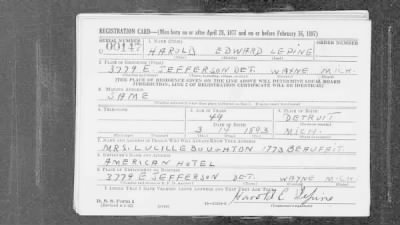 REGISTRATION CARD—(Men born on or after April 28, 1877 and on or before February 16, 1897)
SERIAL NUMBER 1. NAME (Print) ORDER NUMBER
00147 HAROLD EDWARD LEPINE
(First) (Middle) (Last)
2. PLACE OF RESIDENCE (Print)
3779 E. JEFFERSON DET. WAYNE MICH.
(THIS PLACE OF RESIDENCE GIVEN ON THE LINE ABOVE WILL DETERMINE LOCAL BOARD
JURISDICTION; LINE 2 OF REGISTRATION CERTIFICATE WILL BE IDENTICAL)
3. MAILING ADDRESS
SAME
4. TELEPHONE 5. AGE IN YEARS 6. PLACE OF BIRTH
49 DETROIT
DATE OF BIRTH
3 14 1893 MICH.
7. NAME AND ADDRESS OF PERSON WHO WILL ALWAYS KNOW YOUR ADDRESS
MRS. LULILLE BOUGHTON 1773 BEAUFAIT.
8. EMPLOYER'S NAME AND ADDRESS
AMERICAN HOTEL
9. PLACE OF EMPLOYMENT OR BUSINESS
3779 E JEFFERSON DET. WAYNE MICH.
I AFFIRM THAT I HAVE VERIFIED ABOVE ANSWERS AND THAT THEY ARE TRUE.
D. S. S. Form 1 Harold E. Lepine